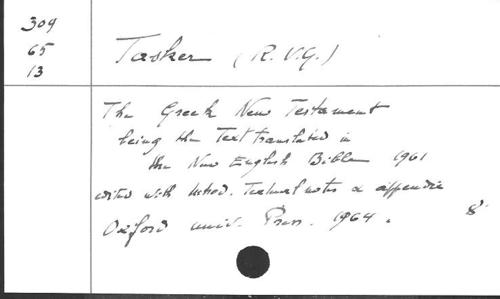 309
65
13
Tasker (R.V.G.)
The Greek New Testament
being the Text translated in
the New English Bible 1961
edited with introd. Textual notes & appendix
Oxford univ. Press. 1964. 8°